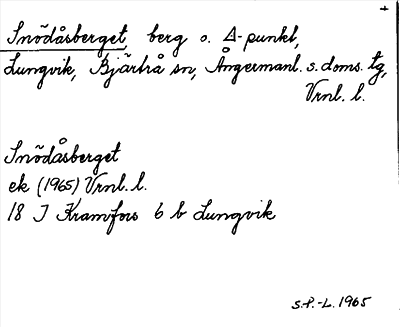 Snödåsberget, berg o. Δ-punkt,
Lungvik, Bjärtrå sn, Ångermanl. s. doms. tg,
Vrnl. l.
Snödåsberget
ek (1965) Vrnl. l.
18 J Kramfors 6 b Lungvik
S.P.-L. 1965